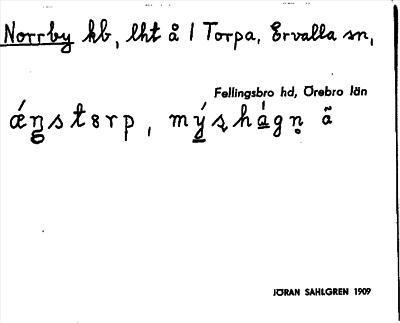 Norrby hb, lht å 1 Torpa, Ervalla sn,
Fellingsbro hd, Örebro län
ǽŋstɘrp, mýs̨hágn̥ ã
JÖRAN SAHLGREN 1909